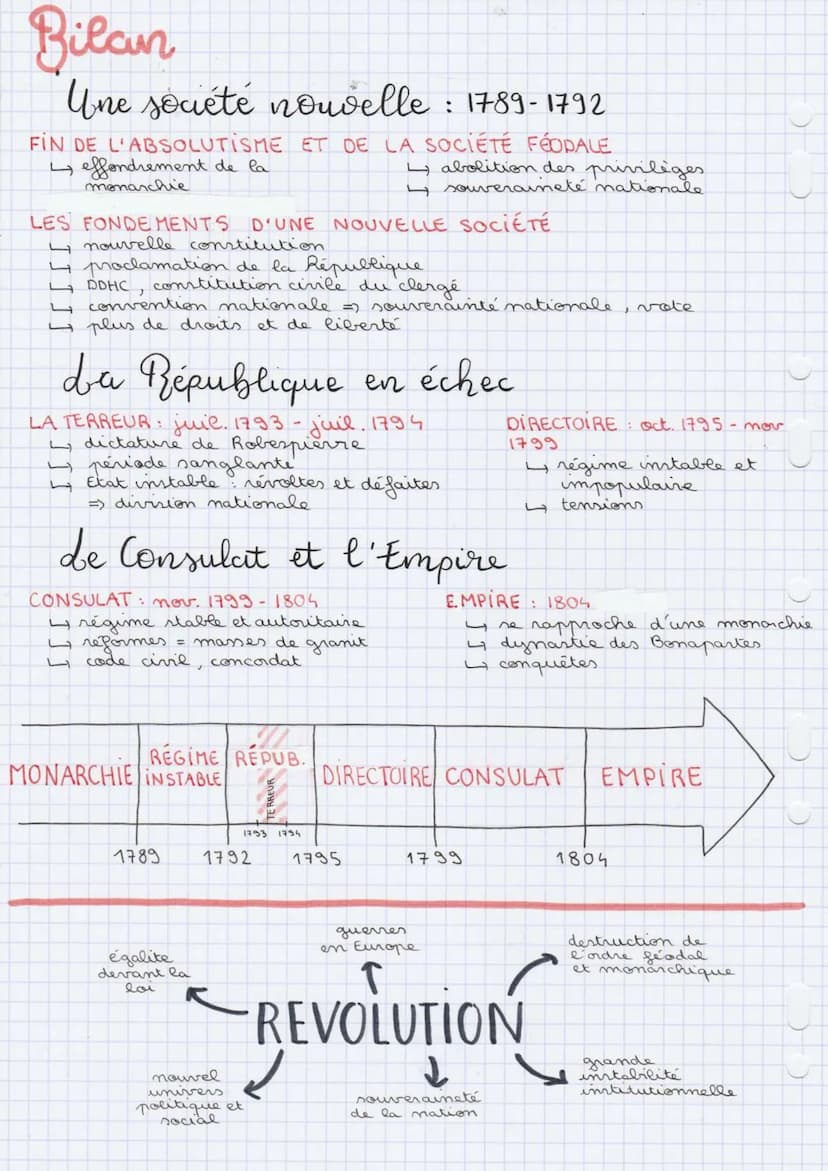 Bilan
Une société nouvelle : 1789-1792
FIN DE L'ABSOLUTISME ET DE LA SOCIÉTÉ FÉODALE
↳ effondrement de la
monarchie
↳ abolition des privilèges
↳ souveraineté nationale
LES FONDEMENTS D'UNE NOUVELLE SOCIÉTÉ
↳ nouvelle constitution
↳ proclamation de la République
↳ DDHC, constitution civile du clergé
↳ convention nationale => souverainté nationale, vote
↳ plus de droits et de liberté
La République en échec
LA TERREUR : juil. 1793 - juil. 1794
↳ dictature de Robespierre
↳ période sanglante
↳ État instable : révoltes et défaites
=> division nationale
DIRECTOIRE : oct. 1795 - nov
1799
↳ régime instable et
impopulaire
↳ tensions
Le Consulat et l'Empire
CONSULAT : nov. 1799 - 1804
↳ régime stable et autoritaire
↳ réformes = masses de granit
↳ code civil, concordat
EMPIRE : 1804
↳ se rapproche d'une monarchie
↳ dynastie des Bonapartes
↳ conquêtes
MONARCHIE
RÉGIME
INSTABLE
RÉPUB.
TERREUR
DIRECTOIRE
CONSULAT
EMPIRE
1793 1794
1789 1792 1795 1799 1804
guerres
en Europe
égalite
devant la
loi
destruction de
l'ordre féodal
et monarchique
REVOLUTION
nouvel
univers
politique et
social
souveraineté
de la nation
grande
instabilité
institutionnelle